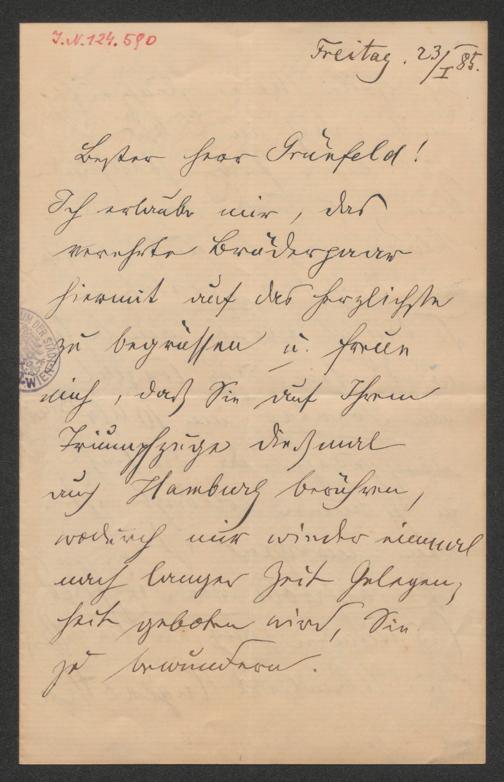 I.N. 124.590
Freitag. 23/I 85.
Bester Herr Grünfeld!
Ich erlaube mir, das
verehrte Brüderpaar
hiermit auf das herzlichste
zu begrüssen u. freue
mich, daß Sie auf Ihrem
Triumphzuge dießmal
auch Hamburg berühren,
wodurch mir wieder einmal
nach langer Zeit Gelegen-
heit geboten wird, Sie
zu bewundern.